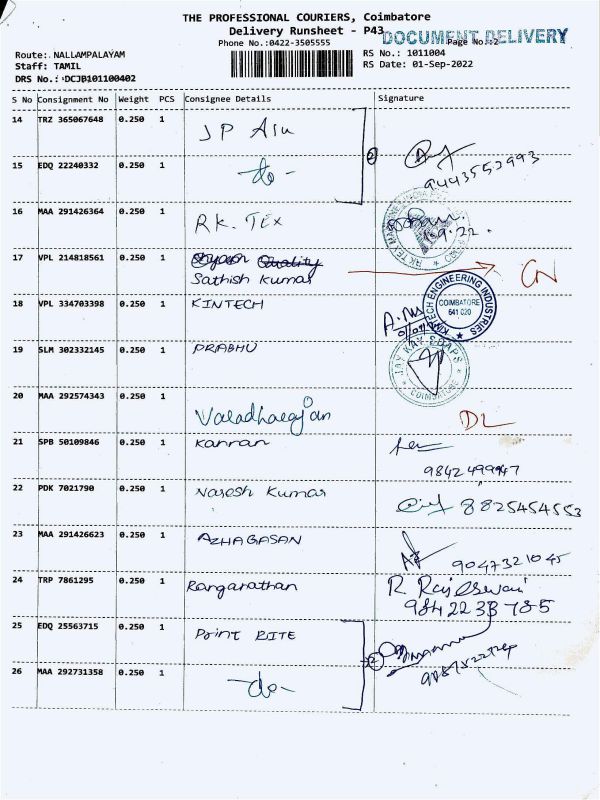 THE PROFESSIONAL COURIERS, Coimbatore
Delivery Runsheet - P43
DOCUMENT DELIVERY
Phone No.:0422-3505555
Page No.:2
Route: NALLAMPALAYAM
RS No.: 1011004
Staff: TAMIL
RS Date: 01-Sep-2022
DRS No.: DCJB101100402
S No Consignment No Weight PCS Consignee Details Signature
14 TRZ 365067648 0.250 1 JP
15 EDQ 22240332 0.250 1 -do- 2
9443553993
16 MAA 291426364 0.250 1 RK. TEX
1.9.22.
17 VPL 214818561 0.250 1 Quality
Sathish Kumar
18 VPL 334703398 0.250 1 KINTECH
KINTECH ENGINEERING INDUSTRIES
COIMBATORE
641 020
19 SLM 302332145 0.250 1 PRABHU
JAY KAY SOAPS
COIMBATORE
20 MAA 292574343 0.250 1 Varadharajan DL
21 SPB 50109846 0.250 1 Kannan
22 PDK 7021790 0.250 1 Naresh Kumar 8825454553
23 MAA 291426623 0.250 1 AZHAGASAN 9047321045
24 TRP 7861295 0.250 1 Rangarathan R. Rajeswari
25 EDQ 25563715 0.250 1 Point RITE
26 MAA 292731358 0.250 1 -do- 2